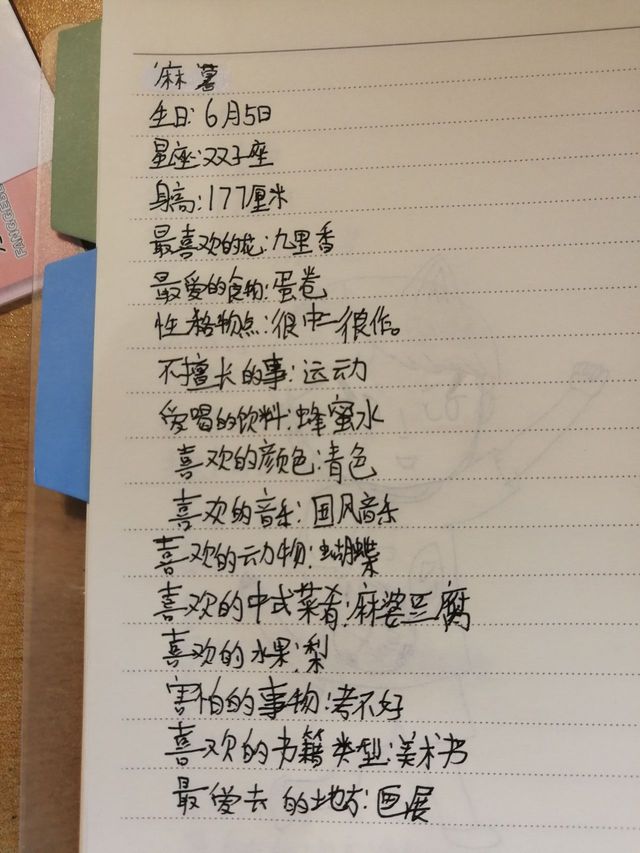 麻薯
生日:6月5日
星座:双子座
身高:177厘米
最喜欢的花:九里香
最爱的食物:蛋卷
性格物点:很中二很作。
不擅长的事:运动
爱唱的饮料:蜂蜜水
喜欢的颜色:青色
喜欢的音乐:国风音乐
喜欢的动物:蝴蝶
喜欢的中式菜肴:麻婆豆腐
喜欢的水果:梨
害怕的事物:考不好
喜欢的书籍类型:美术书
最爱去的地方:画展